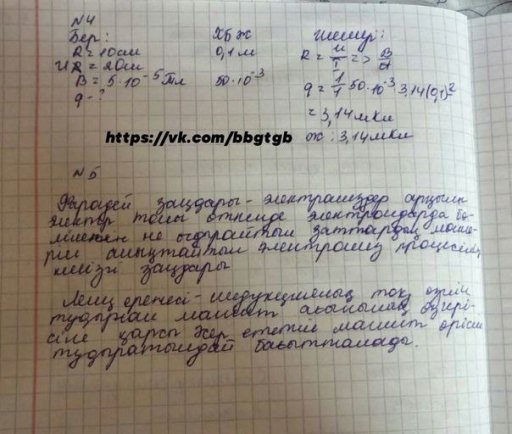 №4
Бер: ХБЖ Шешуі:
R = 10см 0,1м R = U/I => B/a
UR = 20см
B = 5·10⁻⁵Тл 50·10⁻³ q = 1/1 50·10⁻³·3,14(0,1)²
q - ? = 3,14мкл
https://vk.com/bbgtgb ж: 3,14мкл
№5
Фарадей заңдары - электролиздер арқылы
электр тогы өткенде электродтарда бө-
лінетін не ыдырайтын заттардың мөлше-
рін анықтайтын электролиз процесінің
негізгі заңдары
Ленц ережесі - индукцияның тоқ өзін
тудырған магнит ағынының өзгері-
сіне қарсы әсер ететін магнит өрісін
тудыратындай бағытталады.